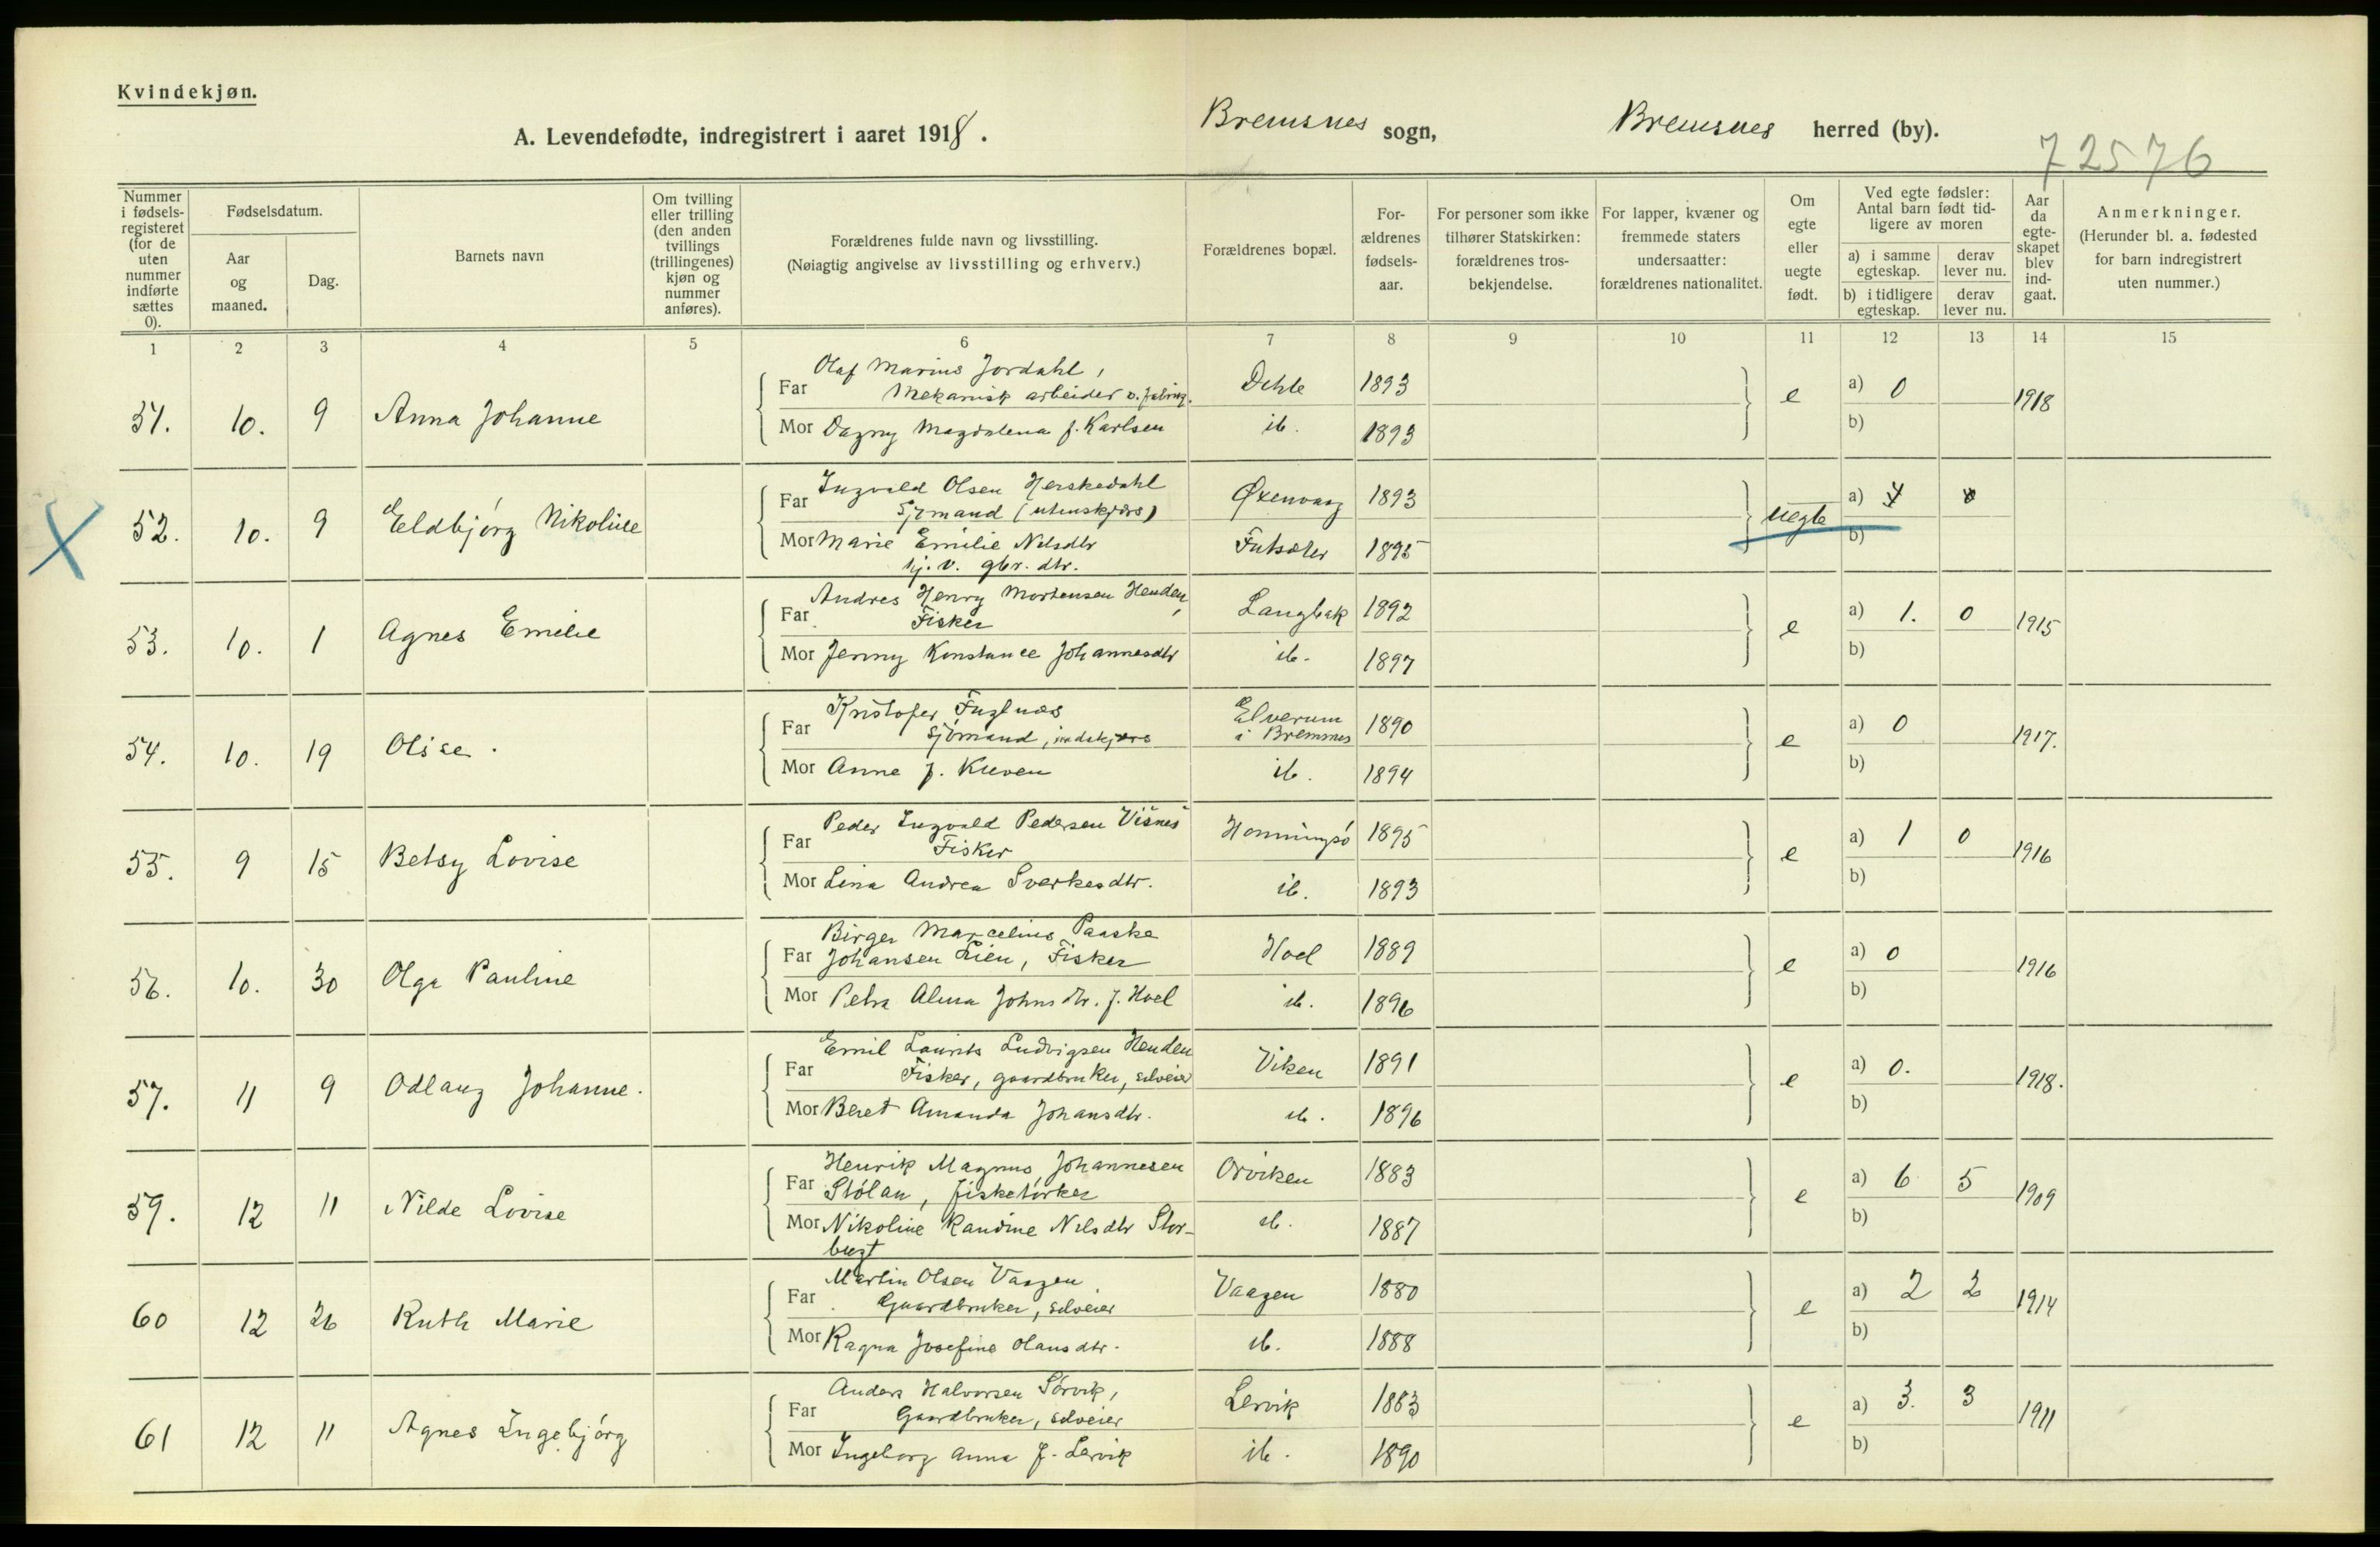 Kvindekjøn.
A. Levendefødte, indregistrert i aaret 1918.
Bremsnes sogn,
Bremsnes herred (by).
72576
Nummer i fødsels-registeret (for de uten nummer indførte sættes 0).
Fødselsdatum.
Aar og maaned.
Dag.
Barnets navn
Om tvilling eller trilling (den anden tvillings (trillingenes) kjøn og nummer anføres).
Forældrenes fulde navn og livsstilling.
(Nøiagtig angivelse av livsstilling og erhverv.)
Forældrenes bopæl.
For-ældrenes fødsels-aar.
For personer som ikke tilhører Statskirken: forældrenes tros-bekjendelse.
For lapper, kvæner og fremmede staters undersaatter: forældrenes nationalitet.
Om egte eller uegte født.
Ved egte fødsler: Antal barn født tid-ligere av moren
a) i samme egteskap.
derav lever nu.
b) i tidligere egteskap.
derav lever nu.
Aar da egte-skapet blev ind-gaat.
Anmerkninger.
(Herunder bl. a. fødested for barn indregistrert uten nummer.)
1 2 3 4 5 6 7 8 9 10 11 12 13 14 15
51. 10. 9 Anna Johanne
Far Olaf Marius Jordahl, Mekanisk arbeider v. fabrik. Dehle 1893
Mor Dagny Magdalena f. Karlsen ib. 1893
e a) 0 1918
b)
52. 10. 9 Eldbjørg Nikoline
Far Ingvald Olsen Herskedahl Sjømand (utenskjærs) Øxenvaag 1893
Mor Marie Emilie Nilsdtr hj. v. gbr. dtr. Futsæter 1895
uegte a)
b)
53. 10. 1 Agnes Emilie
Far Andres Henry Mortensen Henden, Fisker Langbak 1892
Mor Jenny Konstance Johannesdtr ib. 1897
e a) 1. 0 1915
b)
54. 10. 19 Olise.
Far Kristofer Fuglnæs Sjømand, indskjærs Elverum i Bremsnes 1890
Mor Anne f. Kleven ib. 1894
e a) 0 1917.
b)
55. 9 15 Betsy Lovise
Far Peder Ingvald Pedersen Visnes Fisker Honningsø 1895
Mor Lina Andrea Sverkesdtr. ib. 1893
e a) 1 0 1916
b)
56. 10. 30 Olga Pauline
Far Birger Marcelius Paaske Johansen Lien, Fisker Hoel 1889
Mor Petra Alma Johnsdtr. f. Hoel ib. 1896
e a) 0 1916
b)
57. 11 9 Odlaug Johanne.
Far Emil Laurits Ludvigsen Henden Fisker, gaardbruker, selveier Viken 1891
Mor Beret Amanda Johansdtr. ib. 1896
e a) 0. 1918.
b)
59. 12 11 Nilde Lovise
Far Henrik Magnus Johannesen Stølan, fisketørker Orviken 1883
Mor Nikoline Randine Nilsdtr Stor-bugt ib. 1887
e a) 6 5 1909
b)
60 12 26 Ruth Marie
Far Martin Olsen Vaagen Gaardbruker, selveier Vaagen 1880
Mor Ragna Josefine Olausdtr. ib. 1888
e a) 2 2 1914
b)
61 12 11 Agnes Ingebjørg
Far Anders Halvorsen Sørvik, Gaardbruker, selveier Lervik 1883
Mor Ingeborg Anna f. Lervik ib. 1890
e a) 3. 3 1911
b)